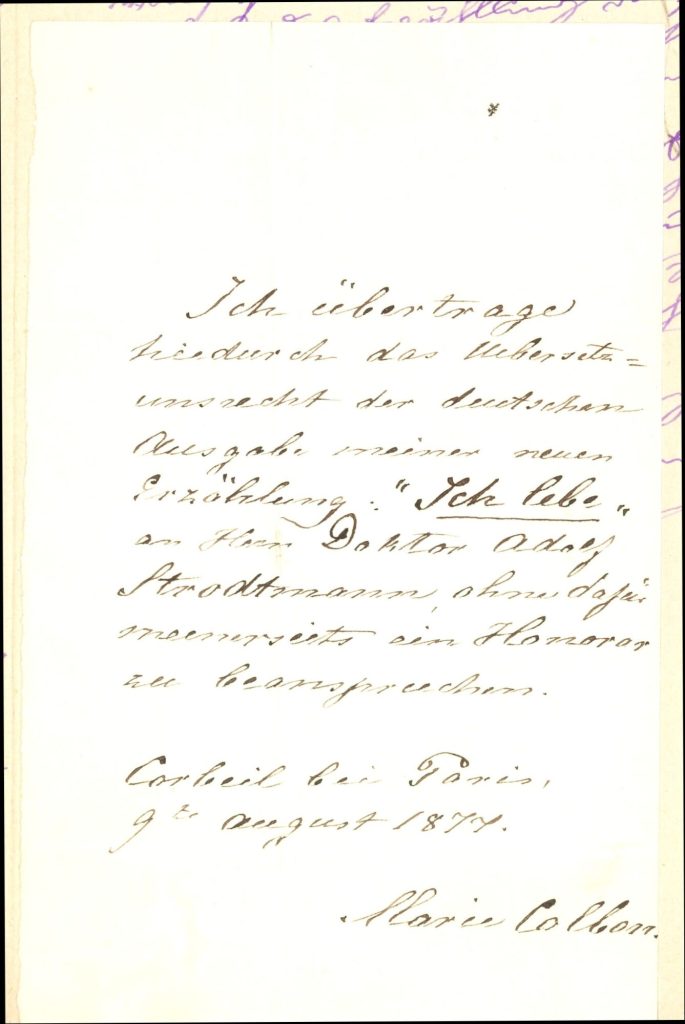 *
Ich übertrage
hiedurch das Uebersetz=
unsrecht der deutschen
Ausgabe meiner neuen
Erzählung: "Ich lebe"
an Herr Doktor Adolf
Strodtmann, ohne dafür
meinerseits ein Honorar
zu beanspruchen.
Corbeil bei Paris,
9te August 1877.
Marie Colban.